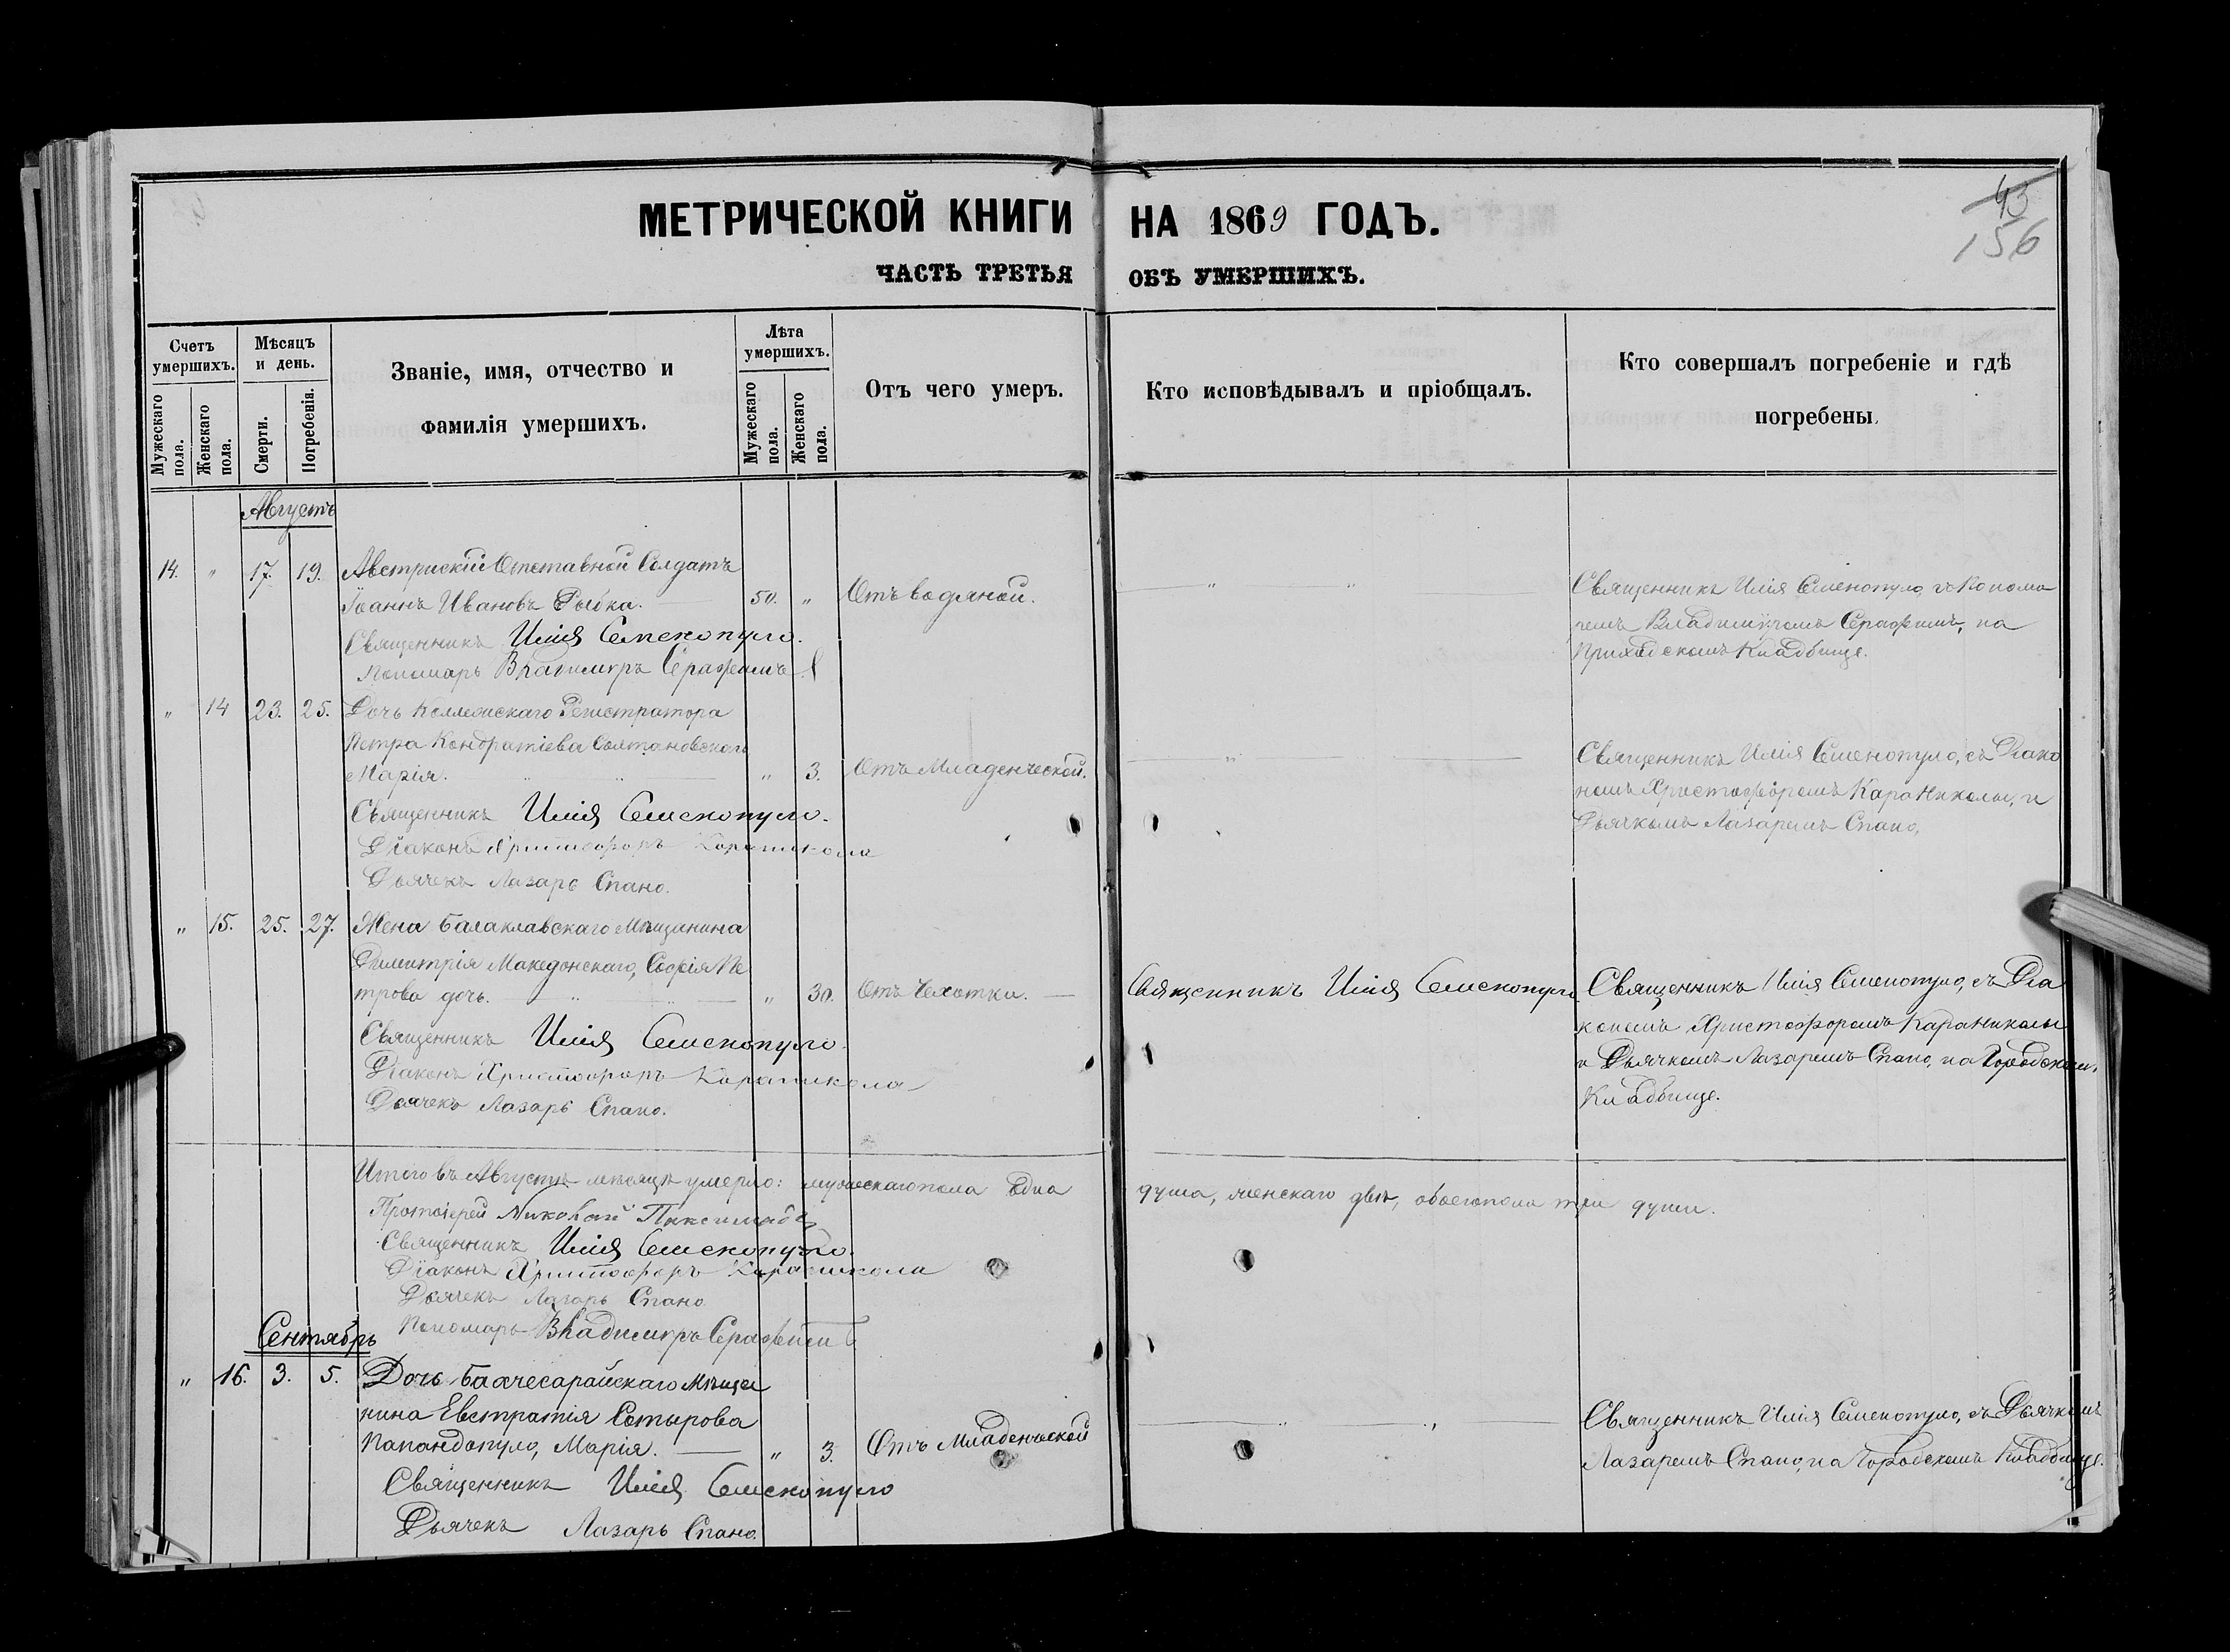 МЕТРИЧЕСКОЙ КНИГИ НА 1869 ГОДЪ.
43
156
ЧАСТЬ ТРЕТЬЯ ОБЪ УМЕРШИХЪ.
Счетъ умершихъ.
Мужескаго пола.
Женскаго пола.
Мѣсяцъ и день.
Смерти.
Погребенія.
Званіе, имя, отчество и
фамилія умершихъ.
Лѣта умершихъ.
Мужескаго пола.
Женскаго пола.
Отъ чего умеръ.
Кто исповѣдывалъ и пріобщалъ.
Кто совершалъ погребеніе и гдѣ
погребены.
Августъ
14. " 17. 19. Австрискій Отставной Солдатъ
Іоаннъ Ивановъ Рыбка. 50. " Отъ водяной. " "
Священникъ Илія Семенопуло.
Пономарь Владимиръ Серафимъ
Священникъ Илія Семенопуло, съ Понома
ремъ Владимиромъ Серафимъ, на
Приходскомъ Кладбище.
" 14 23. 25. Дочь Коллежскаго Регистратора
Петра Кондратіева Солтановскаго
Марія. " " " 3. Отъ Младенческой. "
Священникъ Илія Семенопуло.
Діаконъ Христофоръ Караникола
Дьячекъ Лазарь Спано.
Священникъ Илія Семенопуло, съ Діако
номъ Христофоромъ Караниколы, и
Дьячкомъ Лазаремъ Спано,
" 15. 25. 27. Жена Балаклавскаго Мѣщанина
Димитрія Македонскаго, Софія Пе
трова дочь. " " " 30. Отъ Чехотки. Священникъ Илія Семенопуло
Священникъ Илія Семенопуло.
Діаконъ Христофоръ Караникола
Дьячекъ Лазарь Спано.
Священникъ Илія Семенопуло, съ Діа
кономъ Христофоромъ Караниколы
и Дьячкомъ Лазаремъ Спано, на Городском
Кладбище.
Итого въ Августѣ мѣсяцѣ умерло: мужескаго пола одна душа, женскаго двѣ, обоего пола три души.
Протоіерей Николай
Священникъ Илія Семенопуло.
Діаконъ Христофоръ Караникола
Дьячекъ Лазарь Спано
Пономарь Владимиръ Серафимъ
Сентябрь
" 16. 3. 5. Дочь Бахчесарайскаго Мѣща
нина Евстратія Сотырова
Папандопуло, Марія. " 3. Отъ Младенческой " "
Священникъ Илія Семенопуло
Дьячекъ Лазарь Спано.
Священникъ Илія Семенопуло, съ Дьячкомъ
Лазаремъ Спано, на Городскомъ Кладбище.